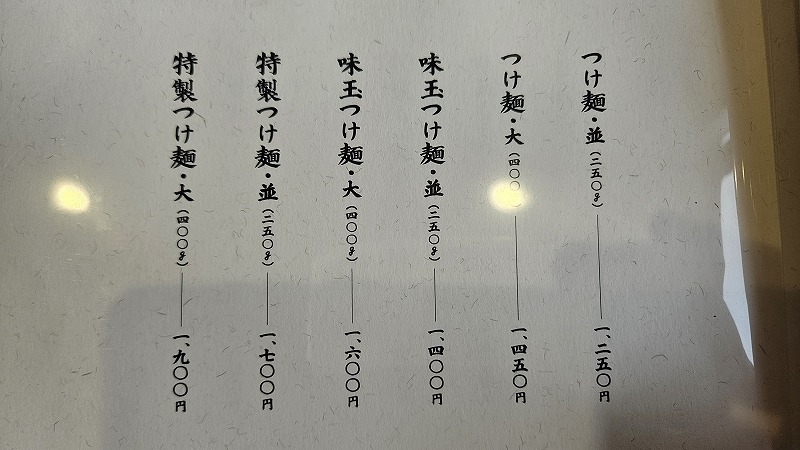 つけ麺・並（二五〇g）――― 一、二五〇円
つけ麺・大（四〇〇 ――― 一、四五〇円
味玉つけ麺・並（二五〇g）――― 一、四〇〇円
味玉つけ麺・大（四〇〇g）――― 一、六〇〇円
特製つけ麺・並（二五〇g）――― 一、七〇〇円
特製つけ麺・大（四〇〇g）――― 一、九〇〇円